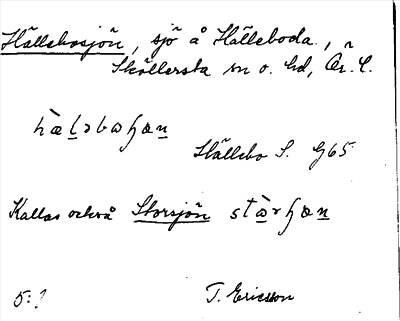 Hällebosjön, sjö å Hälleboda,
Sköllersta sn o. hd, Ör. l.
hæ̀lɜbaʃøn
Hällebo S. G65
Kallas också Storsjön stæ̀rʃøn
5:?
T. Ericsson